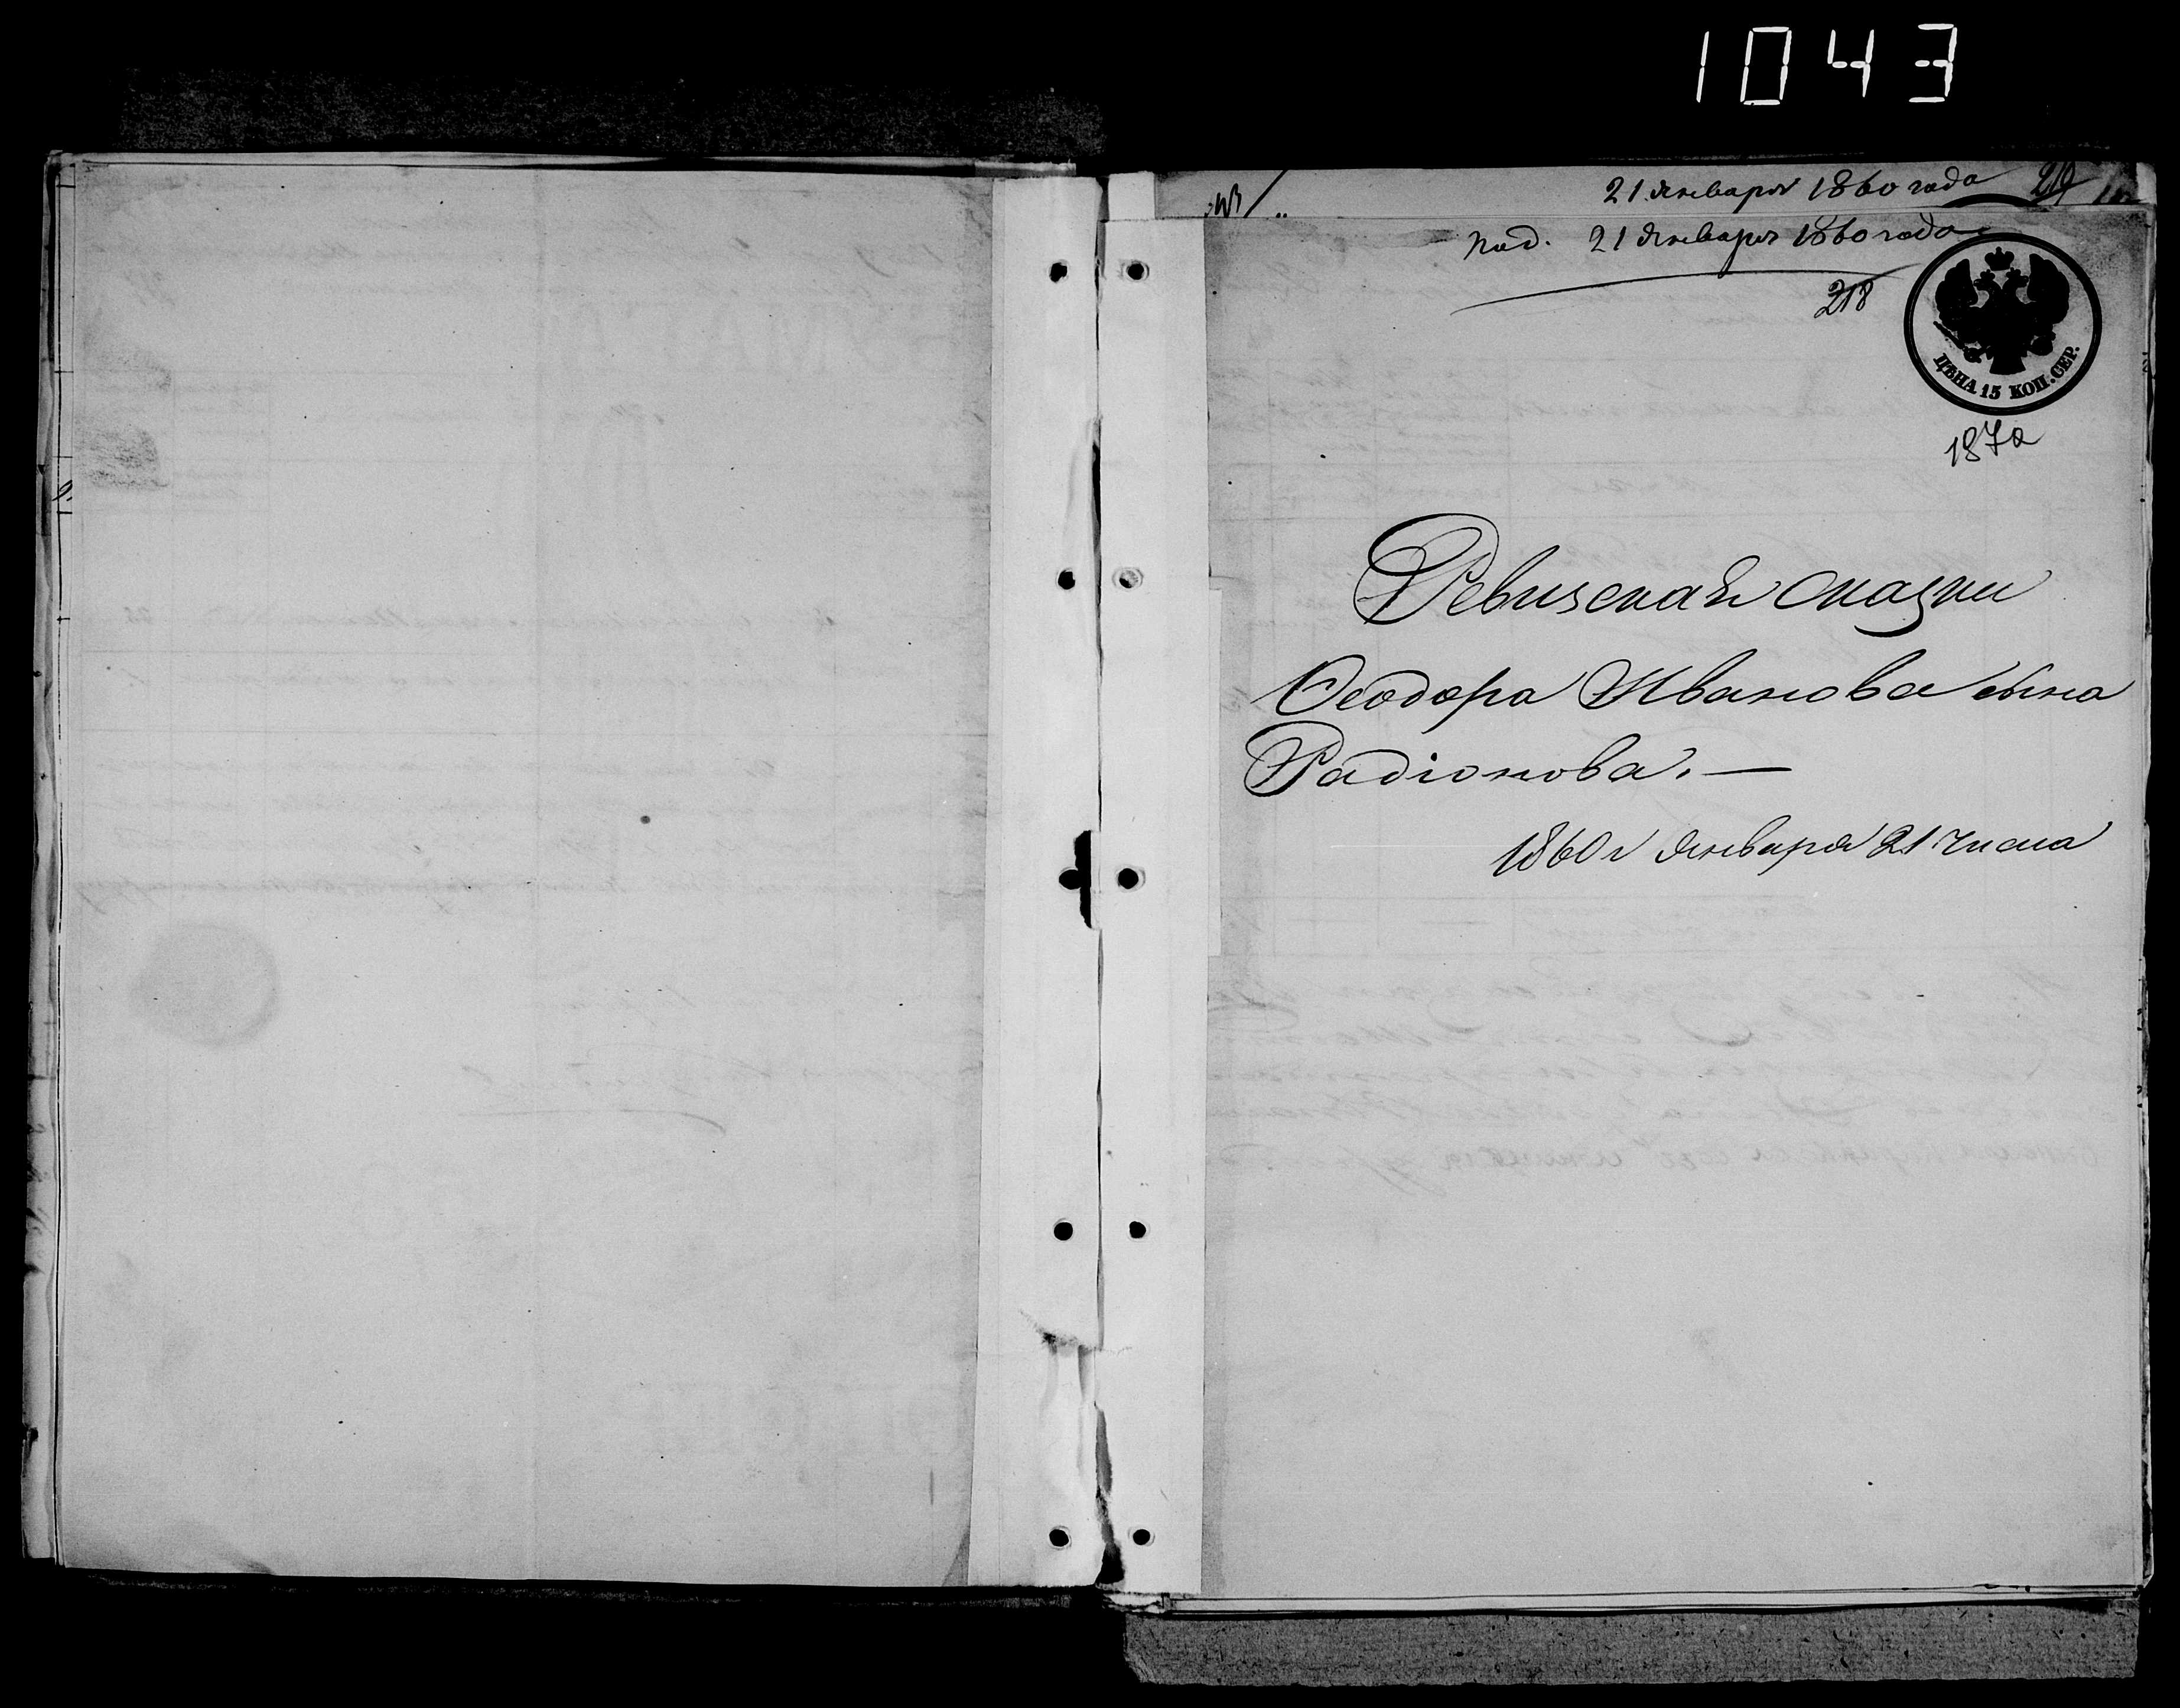 1043
21 января 1860 года 219
под. 21 января 1860 года
218
ЦѢНА 15 КОП. СЕР.
187а
Ревизская сказки
Ѳеодора Иванова сына
Радіонова. —
1860 г января 21 числа